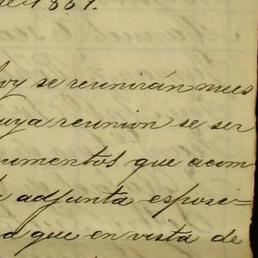 de 1867.
oy se reunirán nues
uya reunion se ser
umentos que acom
adjunta esposi-
a que en vista de